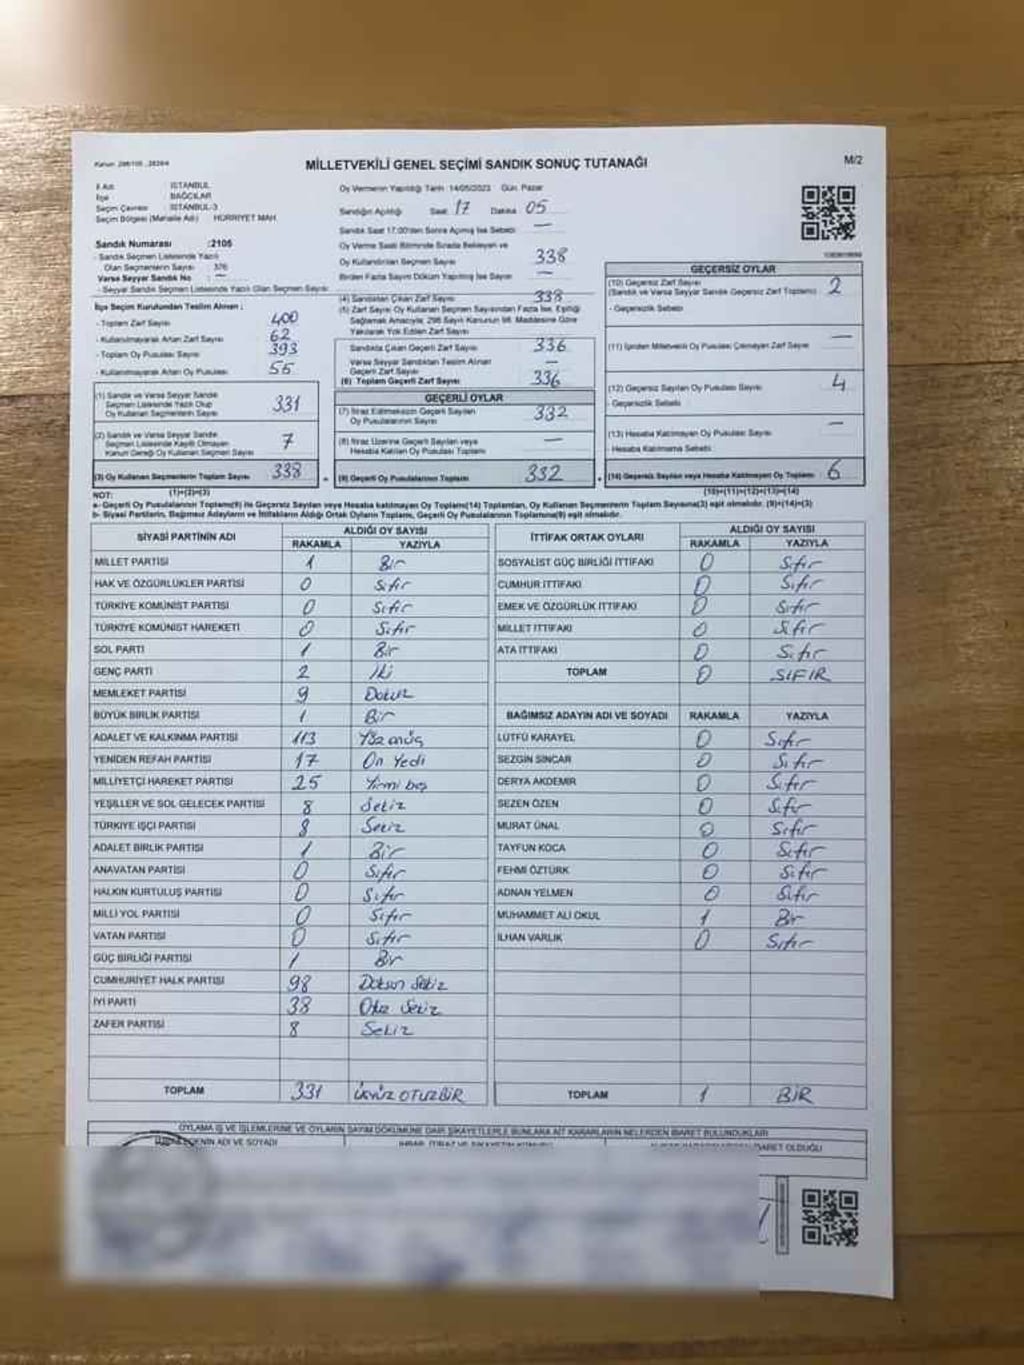 Kanun: 298/105, 2839/4
MİLLETVEKİLİ GENEL SEÇİMİ SANDIK SONUÇ TUTANAĞI
M/2
İl Adı : İSTANBUL
İlçe : BAĞCILAR
Seçim Çevresi : İSTANBUL-3
Seçim Bölgesi (Mahalle Adı) : HÜRRİYET MAH.
Sandık Numarası :2105
- Sandık Seçmen Listesinde Yazılı
Olan Seçmenlerin Sayısı : 376
Varsa Seyyar Sandık No : —
- Seyyar Sandık Seçmen Listesinde Yazılı Olan Seçmen Sayısı:
Oy Vermenin Yapıldığı Tarih: 14/05/2023 Gün: Pazar
Sandığın Açıldığı Saat: 17 Dakika: 05
Sandık Saat 17:00'den Sonra Açılmış İse Sebebi: —
Oy Verme Saati Bitiminde Sırada Bekleyen ve
Oy Kullandırılan Seçmen Sayısı: 338
Birden Fazla Sayım Döküm Yapılmış İse Sayısı: —
İlçe Seçim Kurulundan Teslim Alınan ;
- Toplam Zarf Sayısı: 400
- Kullanılmayarak Artan Zarf Sayısı: 62
- Toplam Oy Pusulası Sayısı: 393
- Kullanılmayarak Artan Oy Pusulası: 55
(1) Sandık ve Varsa Seyyar Sandık
Seçmen Listesinde Yazılı Olup
Oy Kullanan Seçmenlerin Sayısı: 331
(2) Sandık ve Varsa Seyyar Sandık
Seçmen Listesinde Kayıtlı Olmayan
Kanun Gereği Oy Kullanan Seçmen Sayısı: 7
(3) Oy Kullanan Seçmenlerin Toplam Sayısı: 338
(1)+(2)=(3)
(4) Sandıktan Çıkan Zarf Sayısı: 338
(5) Zarf Sayısı Oy Kullanan Seçmen Sayısından Fazla İse, Eşitliği
Sağlamak Amacıyla, 298 Sayılı Kanunun 98. Maddesine Göre
Yakılarak Yok Edilen Zarf Sayısı:
Sandıkta Çıkan Geçerli Zarf Sayısı: 336
Varsa Seyyar Sandıktan Teslim Alınan
Geçerli Zarf Sayısı: —
(6) Toplam Geçerli Zarf Sayısı: 336
GEÇERLİ OYLAR
(7) İtiraz Edilmeksizin Geçerli Sayılan
Oy Pusulalarının Sayısı: 332
(8) İtiraz Üzerine Geçerli Sayılan veya
Hesaba Katılan Oy Pusulaları Toplamı: —
(9) Geçerli Oy Pusulalarının Toplamı: 332
GEÇERSİZ OYLAR
(10) Geçersiz Zarf Sayısı: 2
(Sandık ve Varsa Seyyar Sandık Geçersiz Zarf Toplamı)
- Geçersizlik Sebebi:
(11) İçinden Milletvekili Oy Pusulası Çıkmayan Zarf Sayısı: —
(12) Geçersiz Sayılan Oy Pusulası Sayısı: 4
- Geçersizlik Sebebi:
(13) Hesaba Katılmayan Oy Pusulası Sayısı: —
- Hesaba Katılmama Sebebi:
(14) Geçersiz Sayılan veya Hesaba Katılmayan Oy Toplamı: 6
(10)+(11)+(12)+(13)=(14)
NOT:
a- Geçerli Oy Pusulalarının Toplamı(9) ile Geçersiz Sayılan veya Hesaba katılmayan Oy Toplamı(14) Toplamları, Oy Kullanan Seçmenlerin Toplam Sayısına(3) eşit olmalıdır. (9)+(14)=(3)
b- Siyasi Partilerin, Bağımsız Adayların ve İttifakların Aldığı Ortak Oyların Toplamı, Geçerli Oy Pusulalarının Toplamına(9) eşit olmalıdır.
SİYASİ PARTİNİN ADI ALDIĞI OY SAYISI
RAKAMLA YAZIYLA
MİLLET PARTİSİ 1 Bir
HAK VE ÖZGÜRLÜKLER PARTİSİ 0 Sıfır
TÜRKİYE KOMÜNİST PARTİSİ 0 Sıfır
TÜRKİYE KOMÜNİST HAREKETİ 0 Sıfır
SOL PARTİ 1 Bir
GENÇ PARTİ 2 İki
MEMLEKET PARTİSİ 9 Dokuz
BÜYÜK BİRLİK PARTİSİ 1 Bir
ADALET VE KALKINMA PARTİSİ 113 Yüz onüç
YENİDEN REFAH PARTİSİ 17 On Yedi
MİLLİYETÇİ HAREKET PARTİSİ 25 Yirmi beş
YEŞİLLER VE SOL GELECEK PARTİSİ 8 Sekiz
TÜRKİYE İŞÇİ PARTİSİ 8 Sekiz
ADALET BİRLİK PARTİSİ 1 Bir
ANAVATAN PARTİSİ 0 Sıfır
HALKIN KURTULUŞ PARTİSİ 0 Sıfır
MİLLİ YOL PARTİSİ 0 Sıfır
VATAN PARTİSİ 0 Sıfır
GÜÇ BİRLİĞİ PARTİSİ 1 Bir
CUMHURİYET HALK PARTİSİ 98 Doksan Sekiz
İYİ PARTİ 38 Otuz Sekiz
ZAFER PARTİSİ 8 Sekiz
TOPLAM 331 ÜÇYÜZ OTUZBİR
İTTİFAK ORTAK OYLARI ALDIĞI OY SAYISI
RAKAMLA YAZIYLA
SOSYALİST GÜÇ BİRLİĞİ İTTİFAKI 0 Sıfır
CUMHUR İTTİFAKI 0 Sıfır
EMEK VE ÖZGÜRLÜK İTTİFAKI 0 Sıfır
MİLLET İTTİFAKI 0 Sıfır
ATA İTTİFAKI 0 Sıfır
TOPLAM 0 SIFIR
BAĞIMSIZ ADAYIN ADI VE SOYADI RAKAMLA YAZIYLA
LÜTFÜ KARAYEL 0 Sıfır
SEZGİN SİNCAR 0 Sıfır
DERYA AKDEMİR 0 Sıfır
SEZEN ÖZEN 0 Sıfır
MURAT ÜNAL 0 Sıfır
TAYFUN KOCA 0 Sıfır
FEHMİ ÖZTÜRK 0 Sıfır
ADNAN YELMEN 0 Sıfır
MUHAMMET ALİ OKUL 1 Bir
İLHAN VARLIK 0 Sıfır
TOPLAM 1 BİR
OYLAMA İŞ VE İŞLEMLERİNE VE OYLARIN SAYIM DÖKÜMÜNE DAİR ŞİKAYETLERLE BUNLARA AİT KARARLARIN NELERDEN İBARET BULUNDUKLARI
ADI VE SOYADI